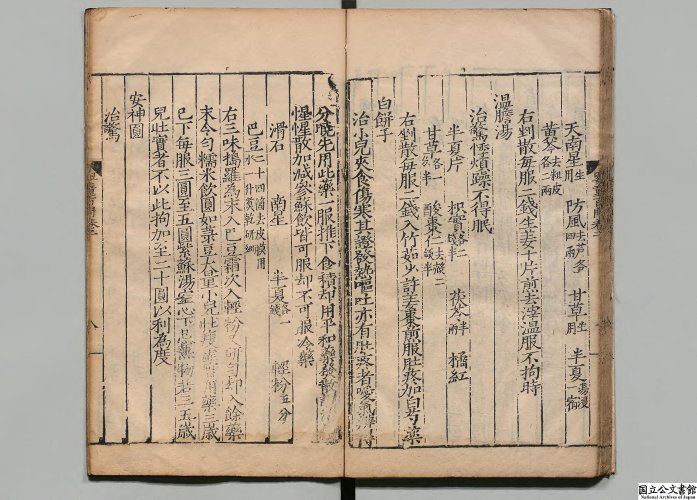 天南星生用 防風去芦 甘草生用 半夏湯浸一宿
黄芩去粗皮各二兩
右剉散每服二錢生姜十片煎去滓温服不拘時
温膽湯
治驚悸煩躁不得眠
半夏片 枳實各二 茯苓半 橘紅
甘草 酸棗仁去殼
右剉散每服一錢入竹茹少許姜棗煎服肚疼加白芍藥
白餅子
治小兒夾食傷寒其證發熱嘔吐亦有肚疼者噯氣
分曉先用此藥一服推下食積却用平和藥發散
惺惺散加減參蘇飲皆可服却不可服冷藥
滑石 南星 半夏各一錢 輕粉五分
巴豆二十四箇去皮膜用水一升煮乾研細
右三味搗羅為末入巴豆霜次入輕粉又研匀却入餘藥
末令匀糯米飲圓如菉豆大量小兒壯瘦用藥三歲
已下每服三圓至五圓紫蘇湯空心下忌熱物若三五歲
兒壯實者不以此拘加至二十圓以利為度
安神圓
治驚
國立公文書館
National Archives of Japan